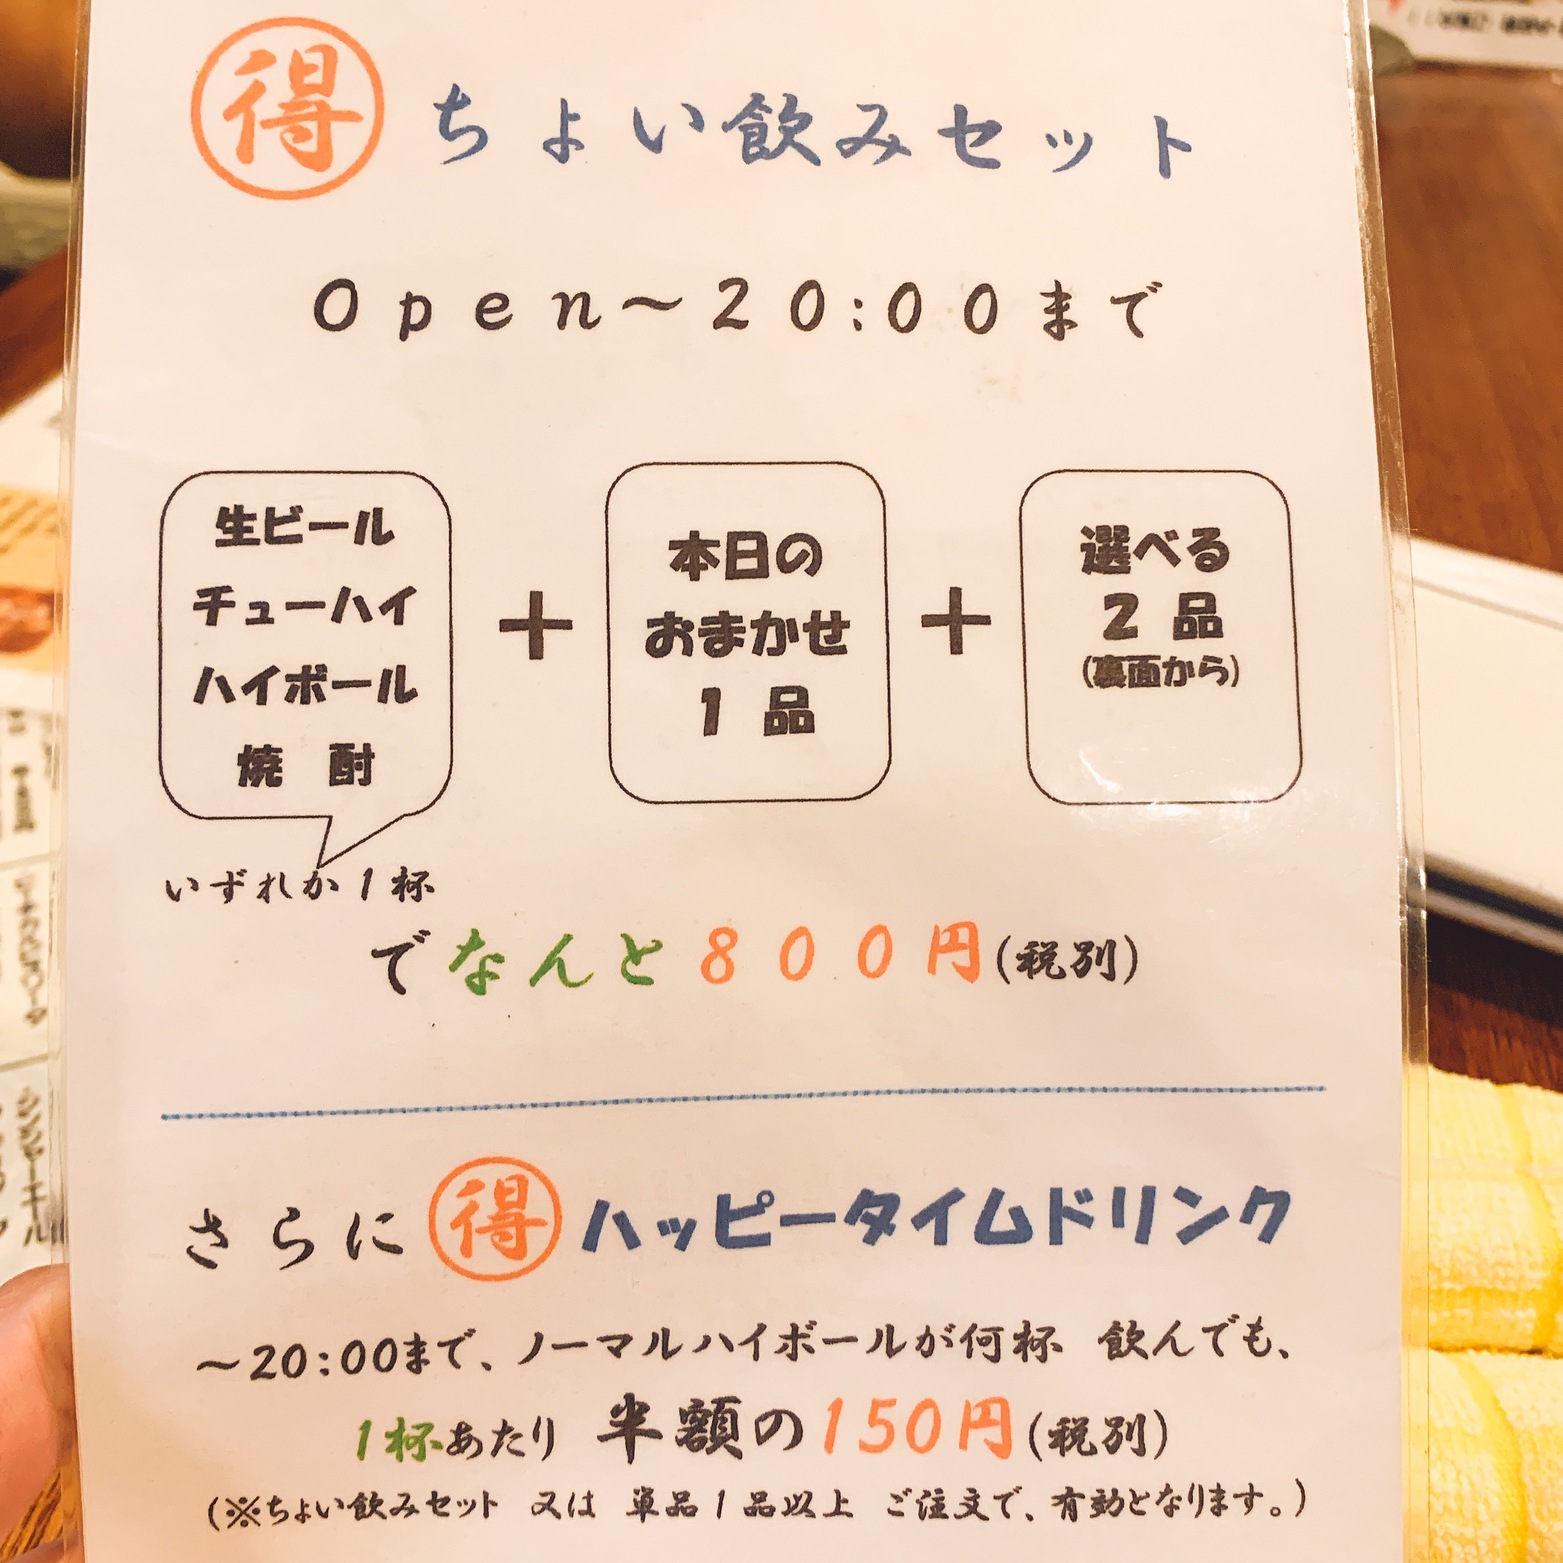 得 ちょい飲みセット
Open～20:00まで
生ビール
チューハイ
ハイボール
焼 酎
いずれか1杯
＋
本日の
おまかせ
1 品
＋
選べる
2 品
(裏面から)
でなんと800円(税別)
さらに 得 ハッピータイムドリンク
～20:00まで、ノーマルハイボールが何杯 飲んでも、
1杯あたり 半額の150円(税別)
(※ちょい飲みセット 又は 単品1品以上 ご注文で、有効となります。)